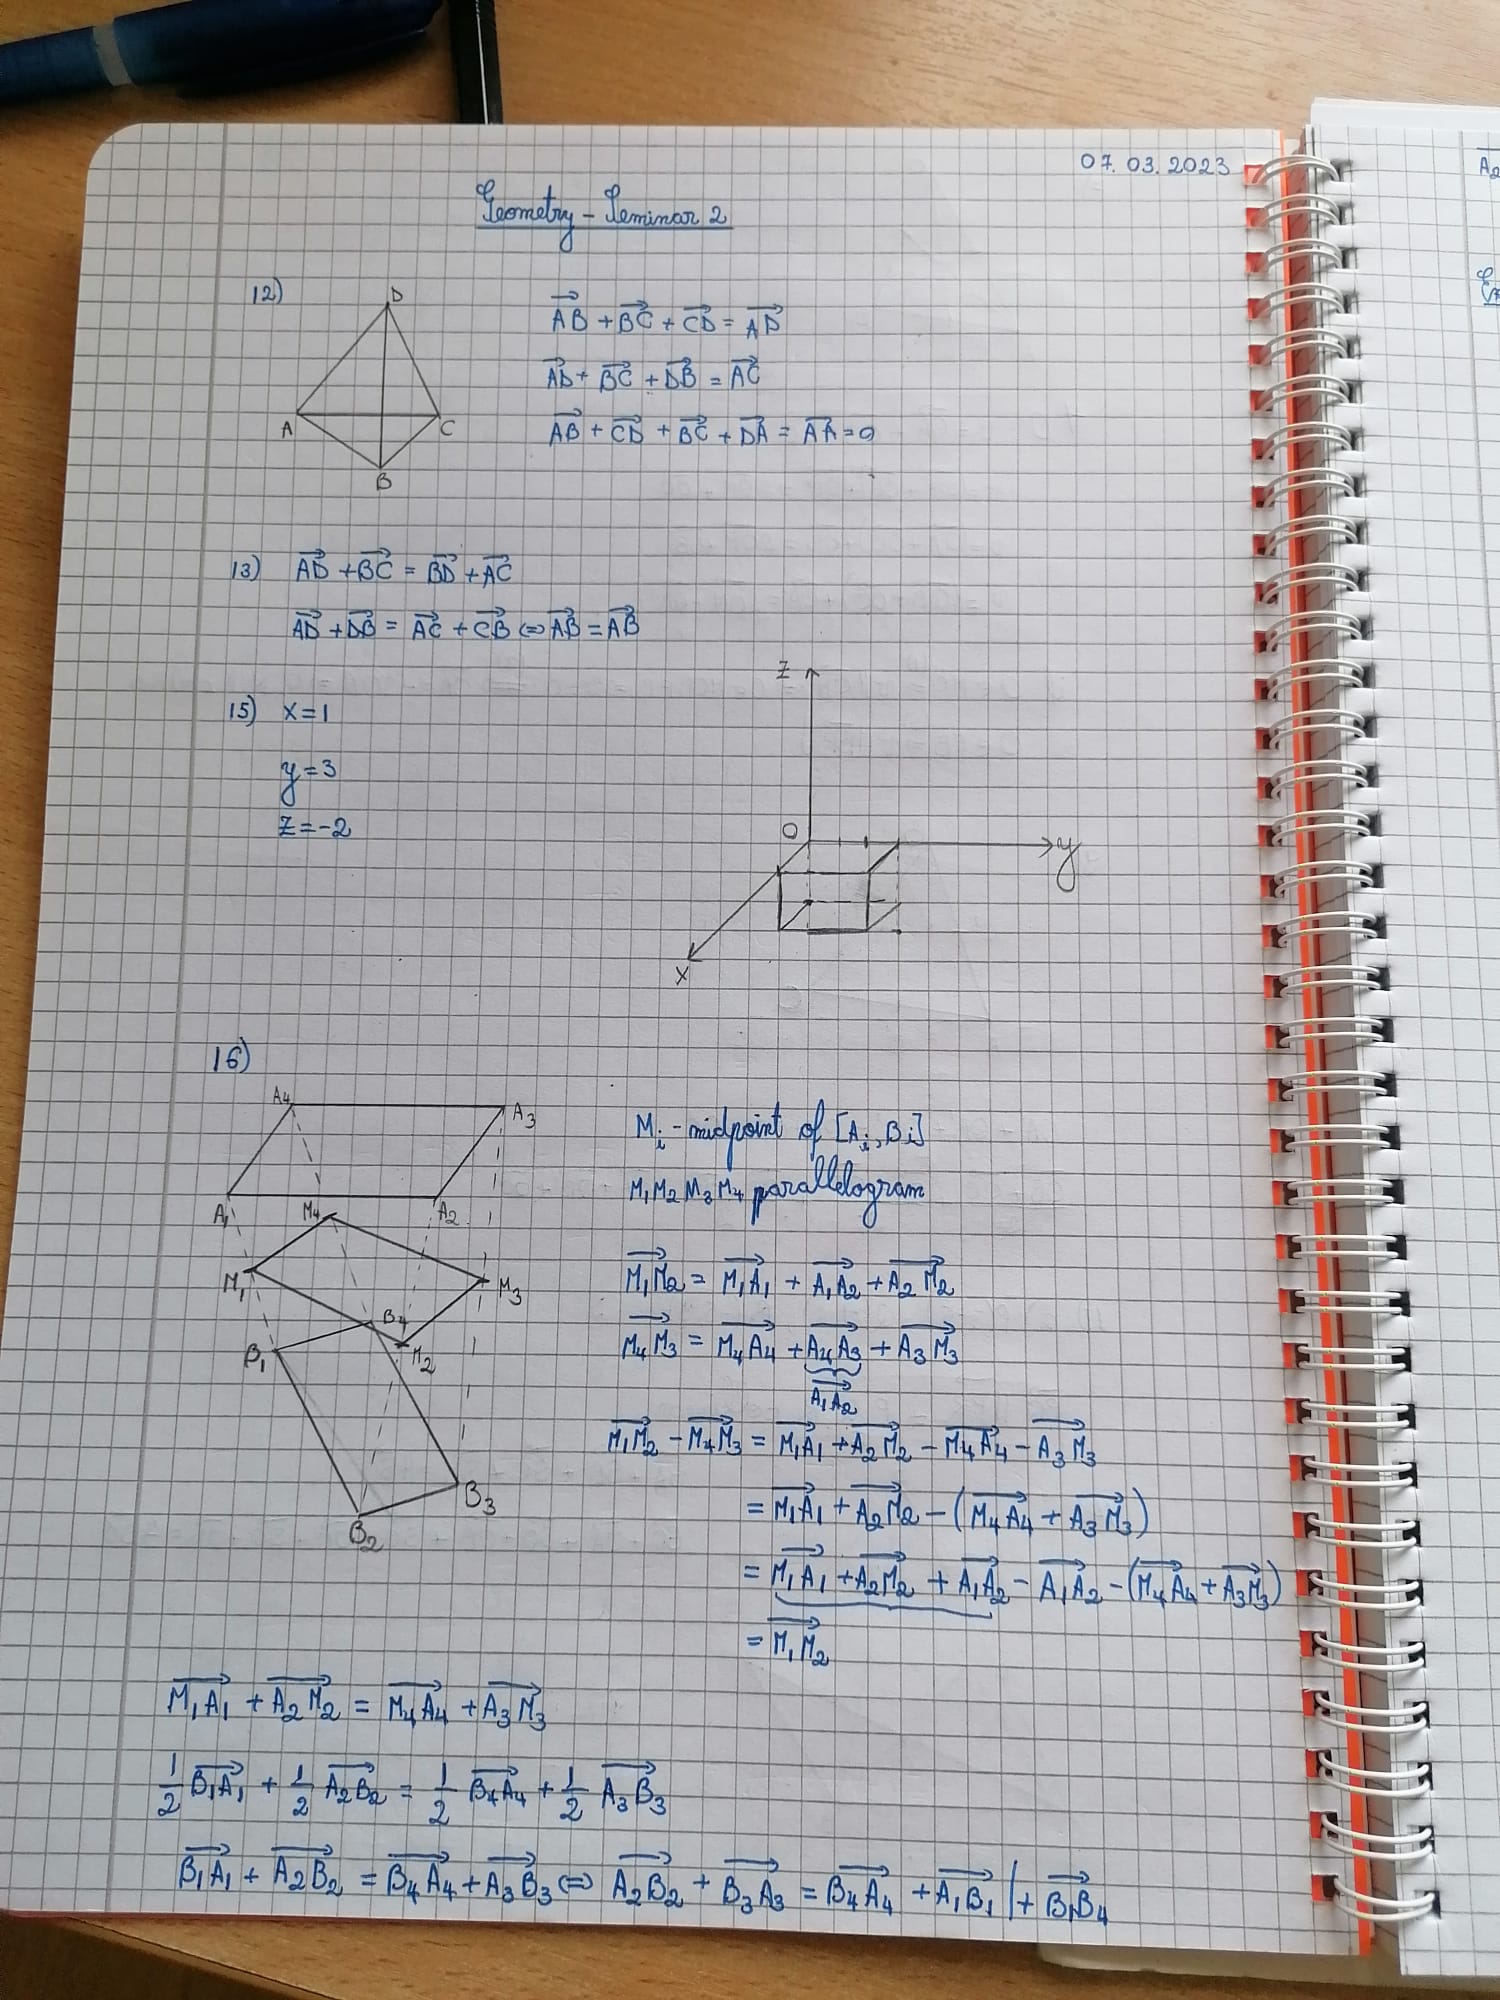 07.03.2023
Geometry - Seminar 2
12)
D
A
C
B
AB + BC + CD = AD
AD + BC + DB = AC
AB + CD + BC + DA = AA = 0
13) AD + BC = BD + AC
AD + DB = AC + CB ⇔ AB = AB
15) x = 1
y = 3
z = -2
z
O
y
x
16)
A4
A3
A1
M4
A2
M1
M3
B4
B1
M2
B3
B2
Mi - midpoint of [Ai, Bi]
M1M2M3M4 parallelogram
M1M2 = M1A1 + A1A2 + A2M2
M4M3 = M4A4 + A4A3 + A3M3
A1A2
M1M2 - M4M3 = M1A1 + A2M2 - M4A4 - A3M3
= M1A1 + A2M2 - (M4A4 + A3M3)
= M1A1 + A2M2 + A1A2 - A1A2 - (M4A4 + A3M3)
= M1M2
M1A1 + A2M2 = M4A4 + A3M3
1/2 B1A1 + 1/2 A2B2 = 1/2 B4A4 + 1/2 A3B3
B1A1 + A2B2 = B4A4 + A3B3 ⇔ A2B2 + B3A3 = B4A4 + A1B1 | + B1B4